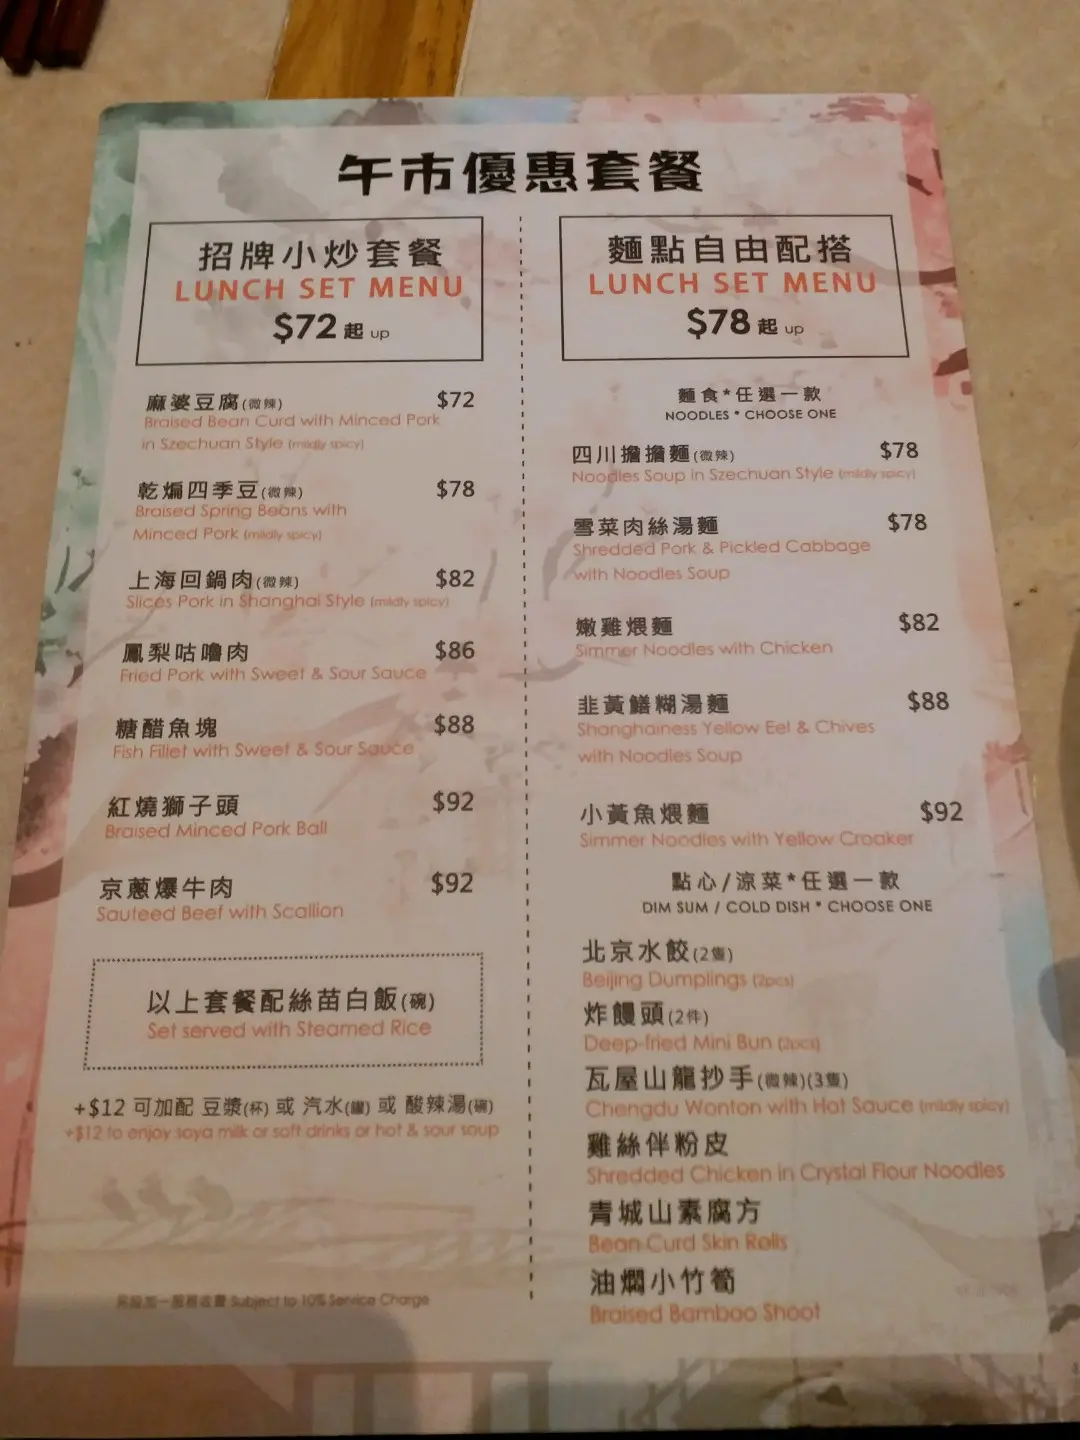 午市優惠套餐
招牌小炒套餐
LUNCH SET MENU
$72 起 up
麻婆豆腐(微辣) $72
Braised Bean Curd with Minced Pork
in Szechuan Style (mildly spicy)
乾煸四季豆(微辣) $78
Braised Spring Beans with
Minced Pork (mildly spicy)
上海回鍋肉(微辣) $82
Slices Pork in Shanghai Style (mildly spicy)
鳳梨咕嚕肉 $86
Fried Pork with Sweet & Sour Sauce
糖醋魚塊 $88
Fish Fillet with Sweet & Sour Sauce
紅燒獅子頭 $92
Braised Minced Pork Ball
京蔥爆牛肉 $92
Sauteed Beef with Scallion
以上套餐配絲苗白飯(碗)
Set served with Steamed Rice
+$12 可加配 豆漿(杯) 或 汽水(罐) 或 酸辣湯(碗)
+$12 to enjoy soya milk or soft drinks or hot & sour soup
另設加一服務收費 Subject to 10% Service Charge
麵點自由配搭
LUNCH SET MENU
$78 起 up
麵食*任選一款
NOODLES * CHOOSE ONE
四川擔擔麵(微辣) $78
Noodles Soup in Szechuan Style (mildly spicy)
雪菜肉絲湯麵 $78
Shredded Pork & Pickled Cabbage
with Noodles Soup
嫩雞煨麵 $82
Simmer Noodles with Chicken
韭黃鱔糊湯麵 $88
Shanghainess Yellow Eel & Chives
with Noodles Soup
小黃魚煨麵 $92
Simmer Noodles with Yellow Croaker
點心/涼菜*任選一款
DIM SUM / COLD DISH * CHOOSE ONE
北京水餃(2隻)
Beijing Dumplings (2pcs)
炸饅頭(2件)
Deep-fried Mini Bun (2pcs)
瓦屋山龍抄手(微辣)(3隻)
Chengdu Wonton with Hot Sauce (mildly spicy)
雞絲伴粉皮
Shredded Chicken in Crystal Flour Noodles
青城山素腐方
Bean Curd Skin Rolls
油燜小竹筍
Braised Bamboo Shoot